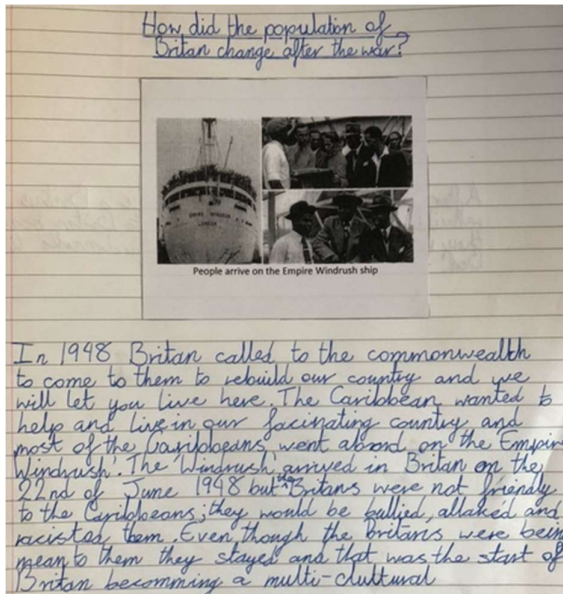 How did the population of
Britan change after the war?
EMPIRE WINDRUSH
LONDON
People arrive on the Empire Windrush ship
In 1948 Britan called to the commonwealth
to come to them to rebuild our country and we
will let you live here. The Caribbean wanted to
help and live in our facinating country and
most of the Caribbeans went abord on the 'Empire
Windrush'. The 'Windrush' arrived in Britan on the
22nd of June 1948 but the Britans were not friendly
to the Caribbeans; they would be bullied, attaked and
racisted them. Even though the britans were being
mean to them they stayed and that was the start of
Britan becomming a multi-clultural